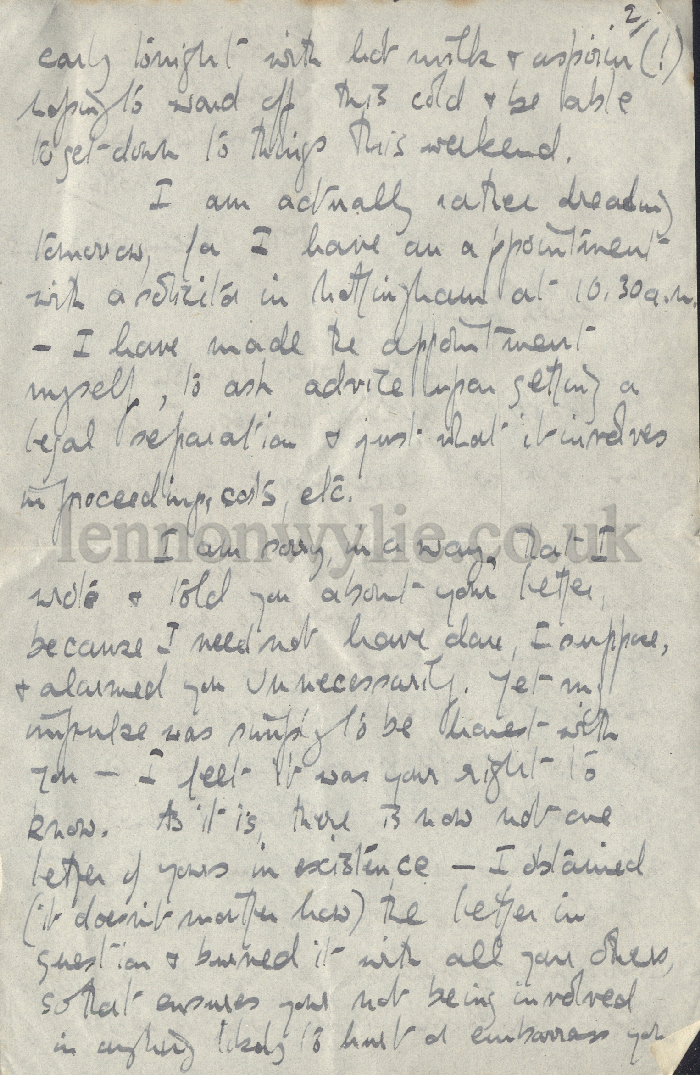 2/
early tonight with hot milk & aspirin (!)
hoping to ward off this cold & be able
to get down to things this weekend.
I am actually rather dreading
tomorrow, for I have an appointment
with a solicitor in Nottingham at 10.30 a.m.
- I have made the appointment
myself, to ask advice upon getting a
legal separation & just what it involves
in proceedings, costs, etc.
lennonwylie.co.uk
I am sorry, in a way, that I
wrote & told you about your letter,
because I need not have done, I suppose,
& alarmed you unnecessarily. Yet my
impulse was simply to be honest with
you — I felt it was your right to
know. As it is, there is now not one
letter of yours in existence — I obtained
(it doesn't matter how) the letter in
question & burned it with all your others,
so that ensures your not being involved
in anything likely to hurt or embarrass you